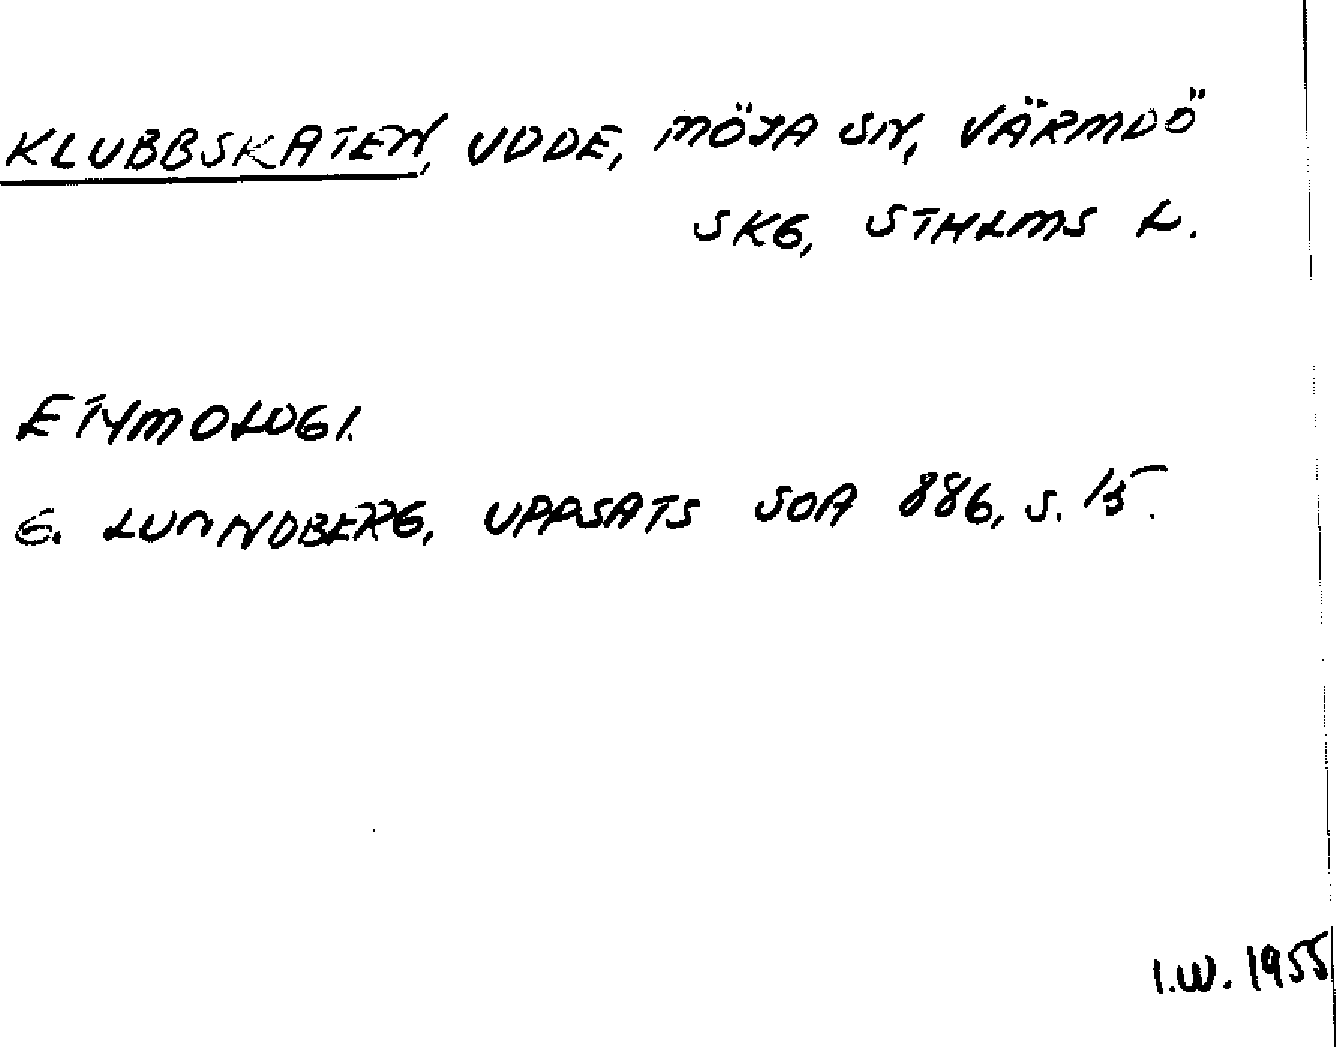 KLUBBSKATEN, UDDE, MÖJA SN, VÄRMDÖ
SKG, STHLMS L.
ETYMOLOGI.
G. LUNNDBERG, UPPSATS SOA 886, S. 15.
I.W. 1955